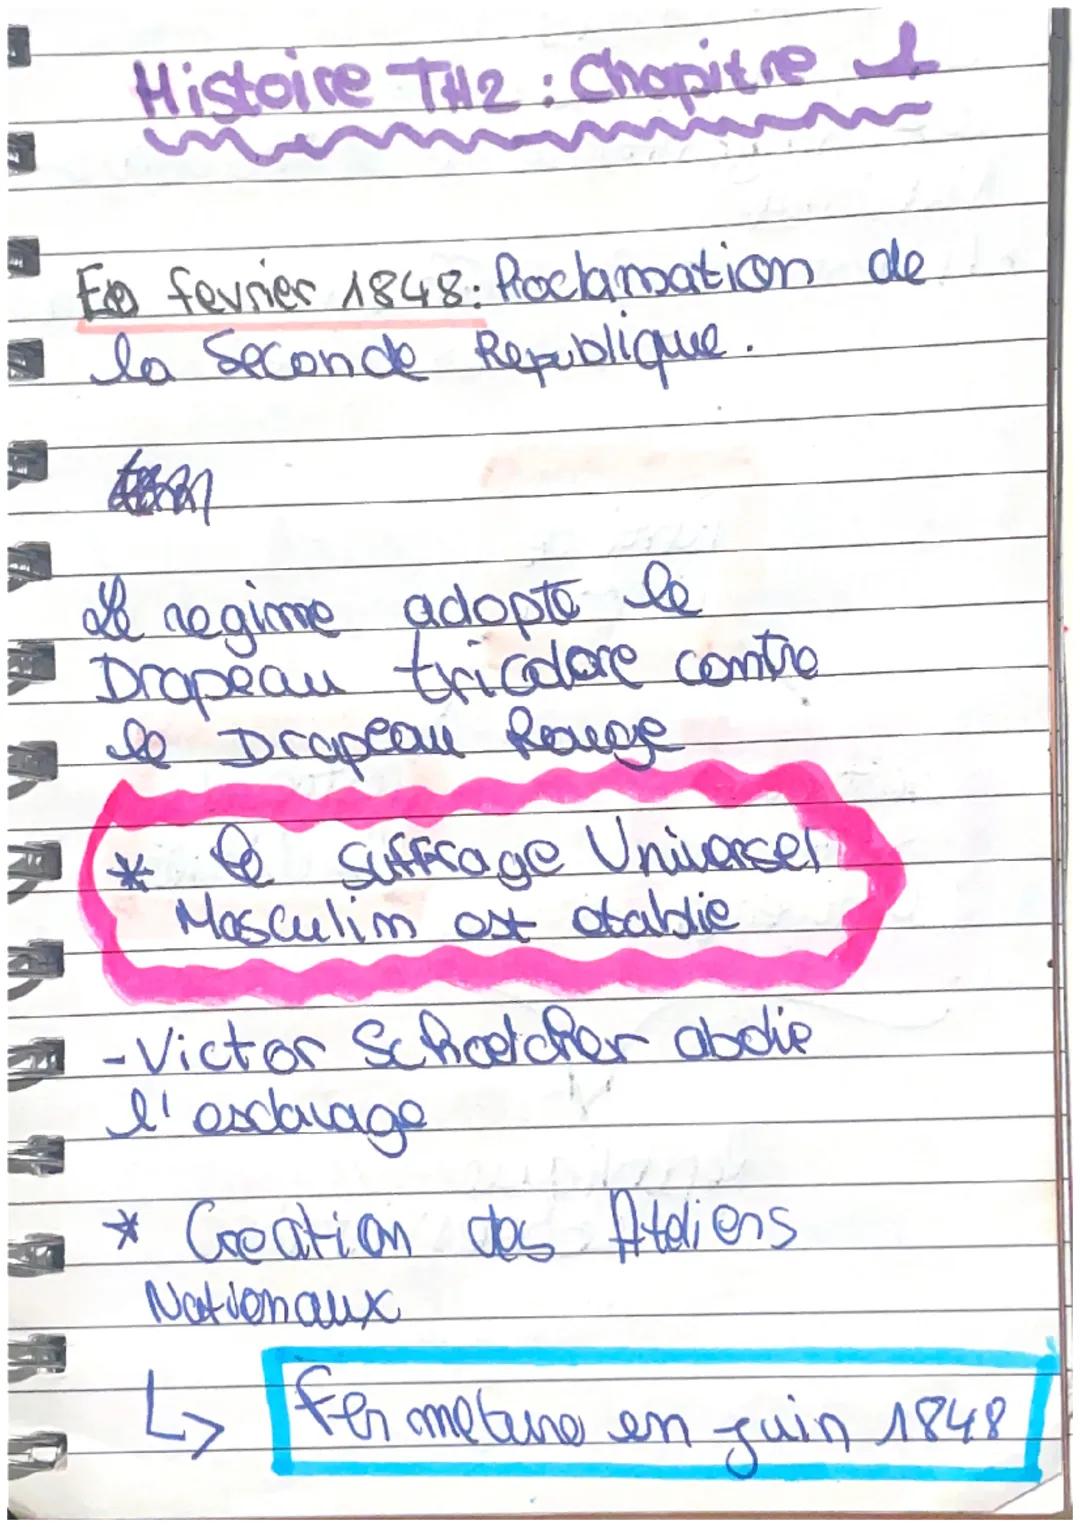 Histoire TH2 : Chapitre 1
En fevrier 1848: Proclamation de
la Seconde Republique.
Le regime adopte le
Drapeau tricolore contre
le Drapeau Rouge
* le suffrage Universel
Masculin est etablie
- Victor Schoelcher abolie
l'esclavage
* Creation des Ateliers
Nationaux
↳ fermeture en juin 1848